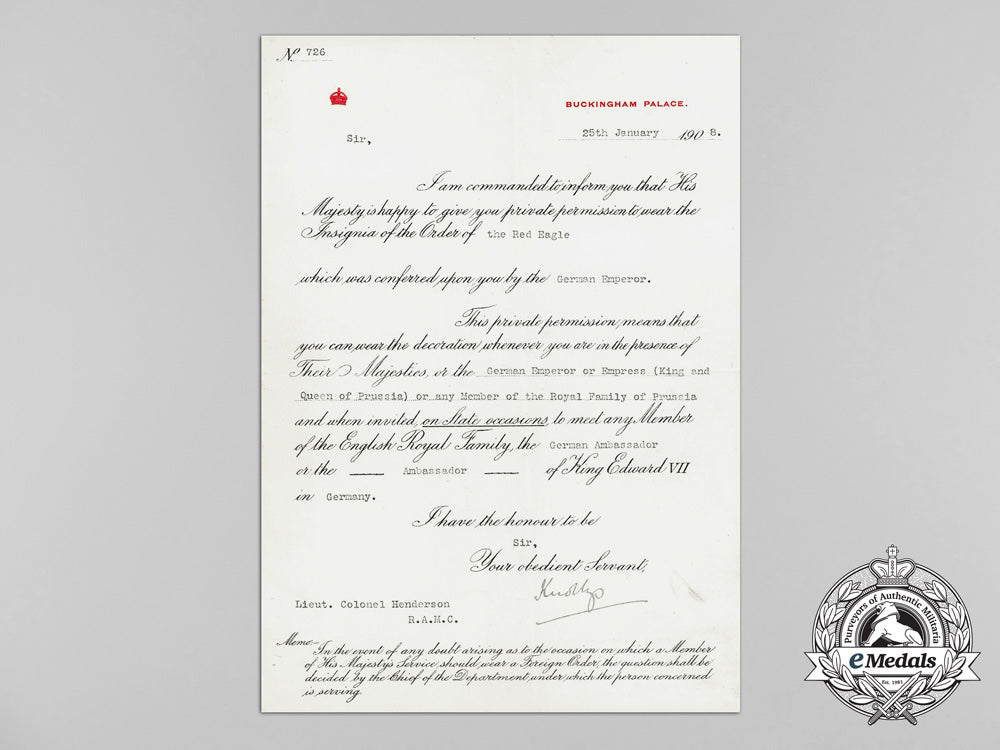 Nº 726
BUCKINGHAM PALACE.
25th January 1908.
Sir,
I am commanded to inform you that His
Majesty is happy to give you private permission to wear the
Insignia of the Order of the Red Eagle
which was conferred upon you by the German Emperor.
This private permission means that
you can wear the decoration whenever you are in the presence of
Their Majesties, or the German Emperor or Empress (King and
Queen of Prussia) or any Member of the Royal Family of Prussia
and when invited, on State occasions, to meet any Member
of the English Royal Family, the German Ambassador
or the —— Ambassador —— of King Edward VII
in Germany.
I have the honour to be
Sir,
Your obedient Servant,
Knollys
Lieut. Colonel Henderson
R.A.M.C.
Memo:-
In the event of any doubt arising as to the occasion on which a Member
of His Majestys Service should wear a Foreign Order, the question shall be
decided by the Chief of the Department under which the person concerned
is serving.
Purveyors of Authentic Militaria
eMedals
Est. 1981